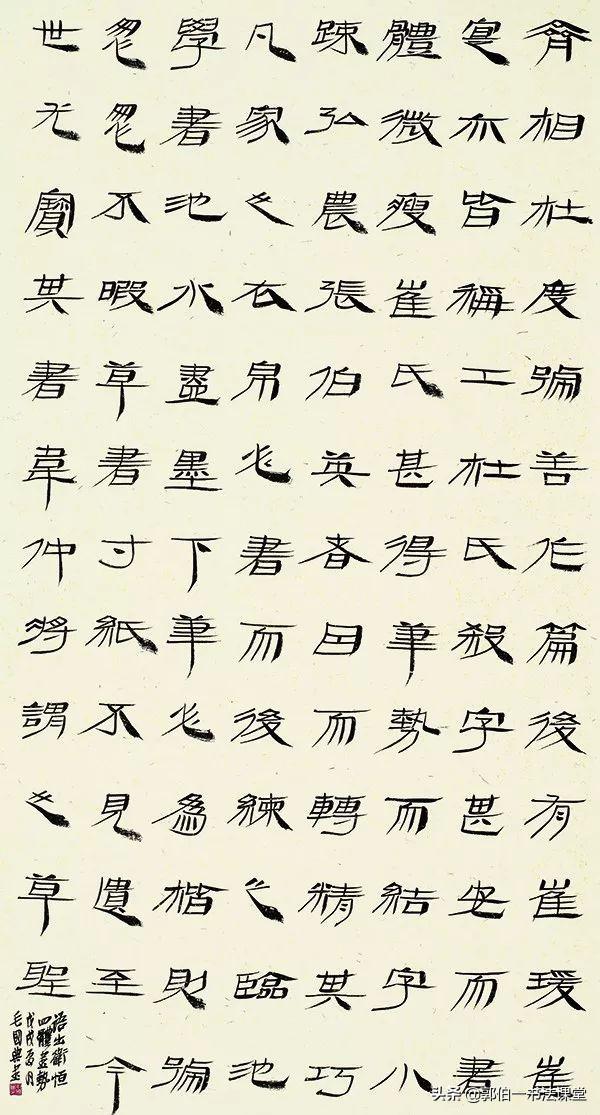 齊相杜度號善作篇後有崔瑗崔
寔亦皆稱工杜氏殺字甚安而書
體微瘦崔氏甚得筆勢而結字小
疎弘農張伯英者因而轉精其巧
凡家之衣帛必書而後練之臨池
學書池水盡墨下筆必爲楷則號
怱怱不暇草書寸紙不見遺至今
世尤寶其書韋仲將謂之草聖
语出衛恒
四體書勢
戊戌夏月
毛國典書
头条 @郭伯一书法课堂